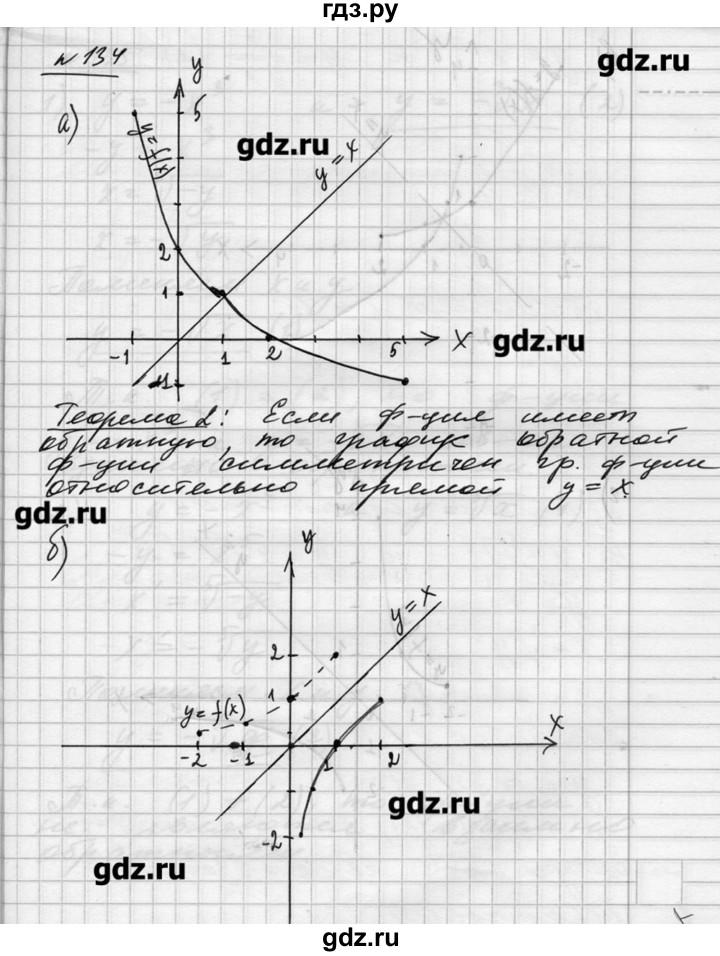 гдз.ру
№ 134
gdz.ru
y
а)
5
y=f(x)
gdz.ru
y=x
2
1
-1
1
2
5
x
gdz.ru
-1
Теорема 2: Если ф-ция имеет
обратную, то график обратной
ф-ции симметричен гр. ф-ции
относительно прямой y=x
gdz.ru
б)
y
y=x
2
1
y=f(x)
x
-2
-1
1
2
gdz.ru
-2
gdz.ru
gdz.ru